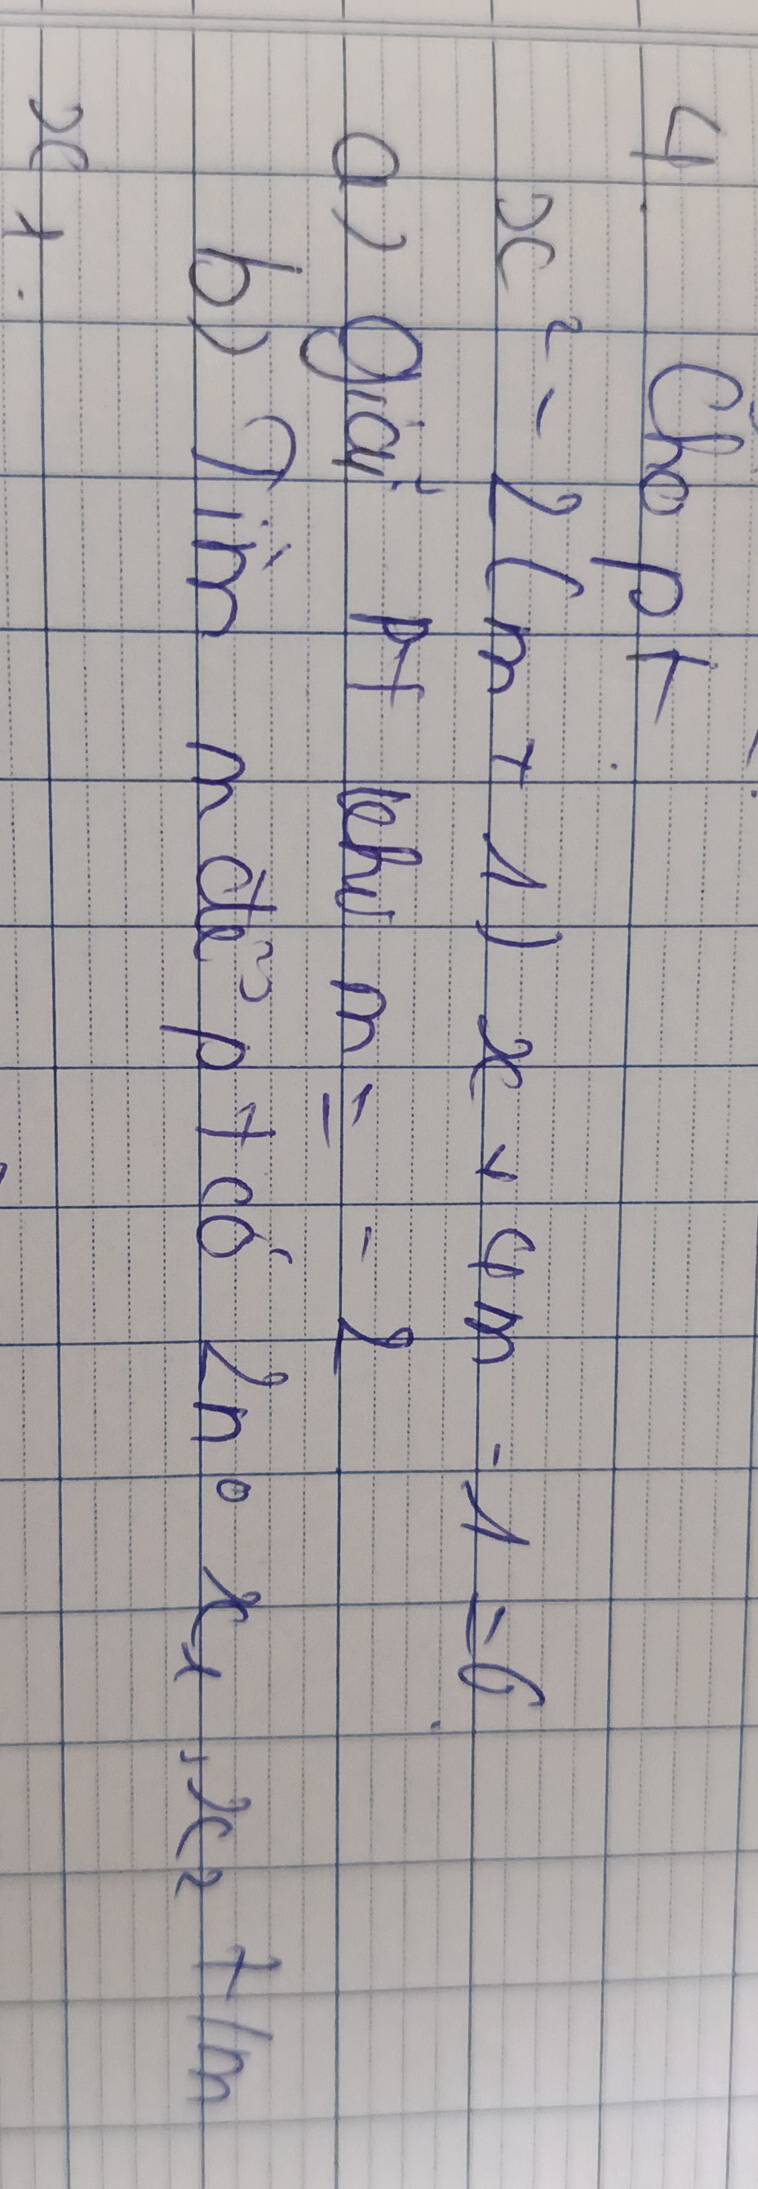 4. Cho pt
x² - 2(m + 1)x + 4m - 1 = 0
a) Giải pt khi m = -2
b) Tìm m để pt có 2 n° x₁, x₂ t/m
x₁